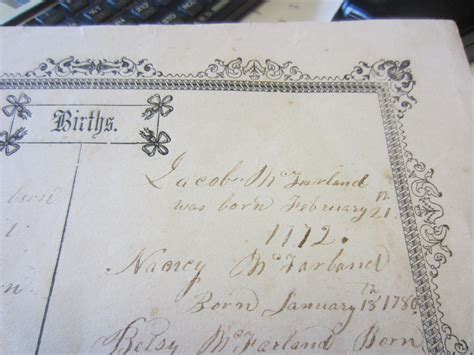 Births.
Jacob McFarland
was born February 21th
1772.
Nancy McFarland
Born January 18th 1780.
Betsy McFarland Born